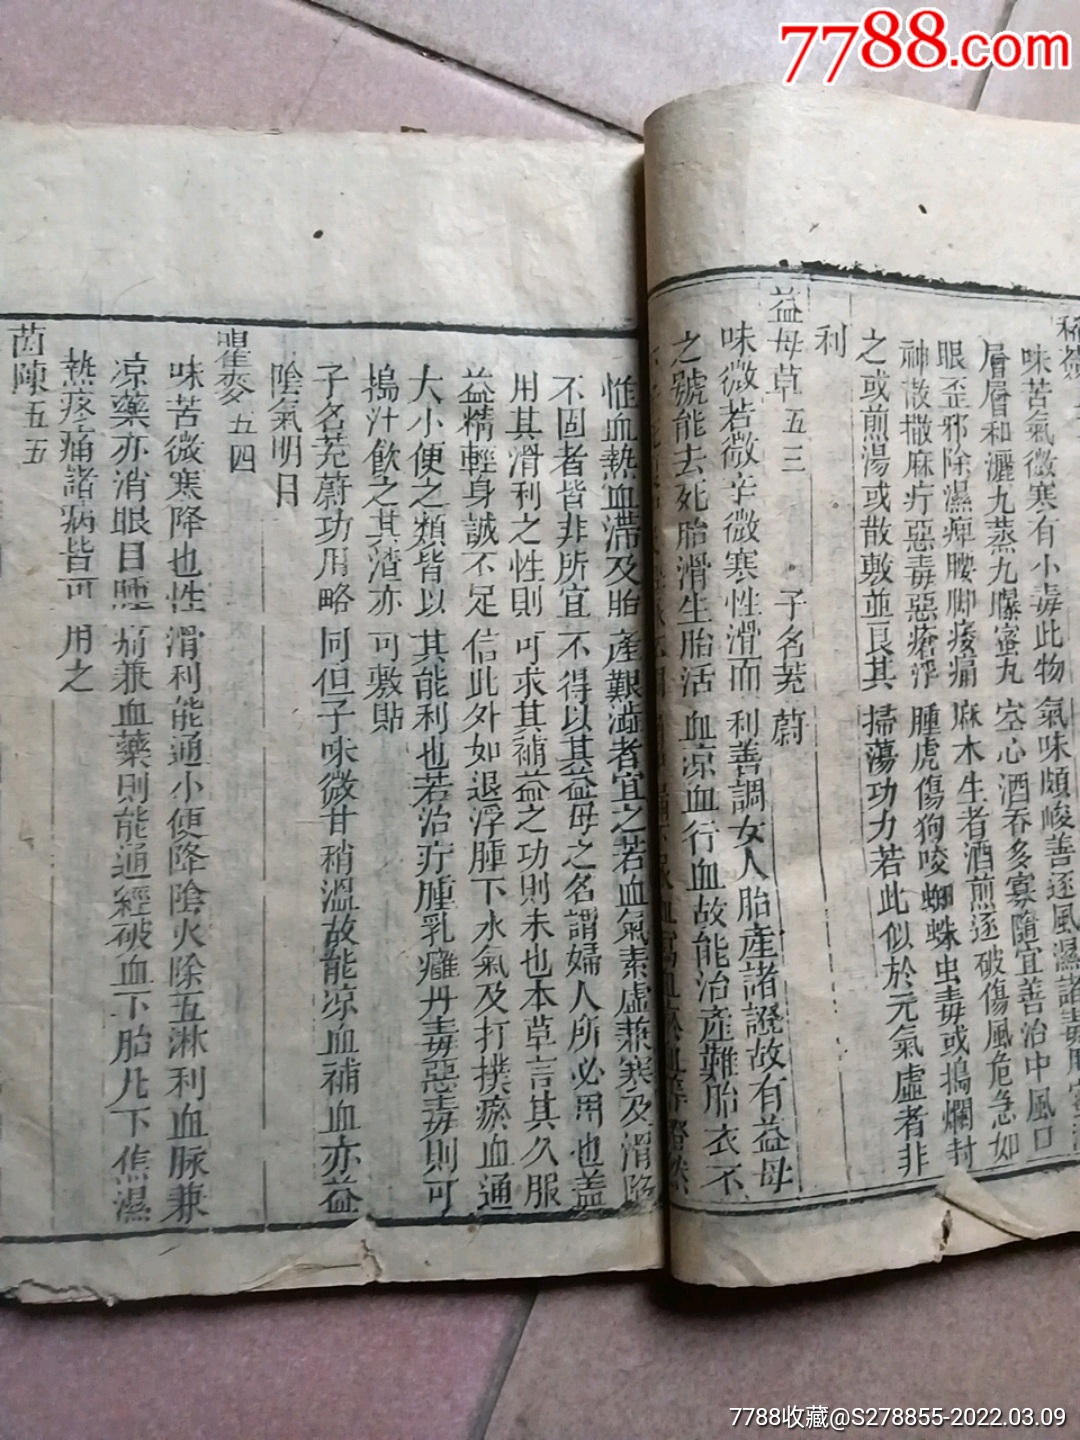 7788.com
味苦氣微寒有小毒此物氣味頗峻善逐風濕諸毒
層層和灑九蒸九曝蜜丸空心酒吞多寡隨宜善治中風口
眼歪邪除濕痺腰脚痠痛麻木生者酒煎逐破傷風危急如
神散撒麻疔惡毒惡瘡浮腫虎傷狗咬蜘蛛虫毒或搗爛封
之或煎湯或散敷並良其掃蕩功力若此似於元氣虛者非
利
益母草五三 子名茺蔚
味微苦微辛微寒性滑而利善調女人胎產諸證故有益母
之號能去死胎滑生胎活血凉血行血故能治產難胎衣不
惟血熱血滯及胎產艱澁者宜之若血氣素虛兼寒及滑陷
不固者皆非所宜不得以其益母之名謂婦人所必用也盖
用其滑利之性則可求其補益之功則未也本草言其久服
益精輕身誠不足信此外如退浮腫下水氣及打撲瘀血通
大小便之類皆以其能利也若治疔腫乳癰丹毒惡毒則可
搗汁飲之其渣亦可敷貼
子名茺蔚功用略同但子味微甘稍溫故能凉血補血亦益
陰氣明目
瞿麥五四
味苦微寒降也性滑利能通小便降陰火除五淋利血脉兼
凉藥亦消眼目腫痛兼血藥則能通經破血下胎凡下焦濕
熱疼痛諸病皆可用之
茵陳五五
7788收藏@S278855-2022.03.09